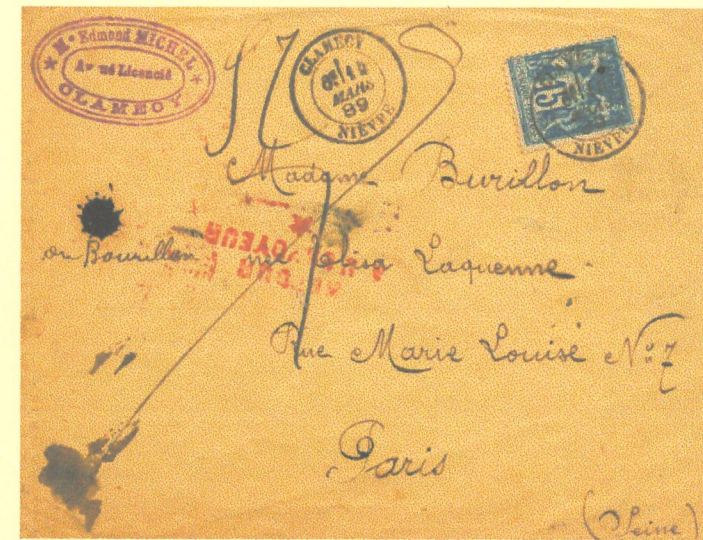 Me Edmond MICHEL
Avoué Licencié
CLAMECY
CLAMECY
MARS
89
NIÈVRE
15
NIÈVRE
Madame Burillon
ou Bourillon née Elisa Laquenne
RETOUR
A L'ENVOYEUR
Rue Marie Louise No 7
Paris
(Seine)